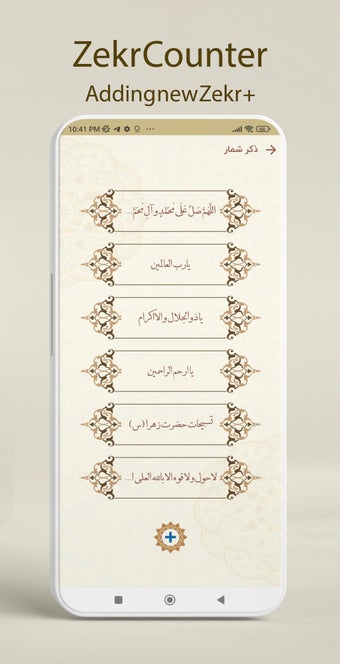 ZekrCounter
AddingnewZekr+
10:41 PM
ذکر شمار
اللّهُمَّ صَلِّ عَلَى مُحَمَّدٍ وَ آلِ مُحَمَّ...
یا رب العالمین
یا ذوالجلال والاکرام
یا ارحم الراحمین
تسبیحات حضرت زهرا (س)
لا حول ولا قوه الا بالله العلی ا...